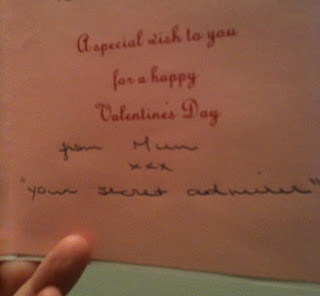 A special wish to you
for a happy
Valentine's Day
from Mum
xxx
"your secret admirer"